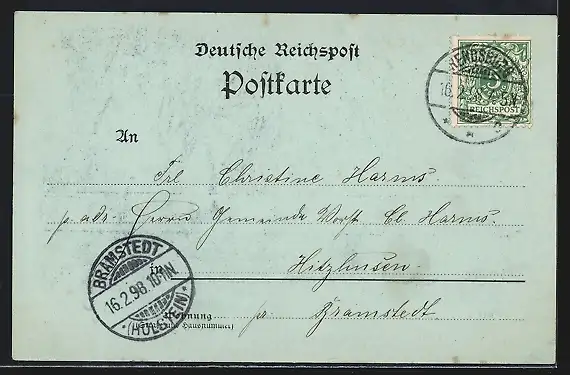 Deutsche Reichspost
Postkarte
RENDSBURG
16.2.
REICHSPOST
An
Frl. Christine Harms.
p. adr. Herrn Gemeinde Vorst. Cl. Harms.
BRAMSTEDT
16.2.98.
*(HOLSTEIN)*
in
Hitzhusen
Wohnung
(Straße und Hausnummer)
p. Bramstedt